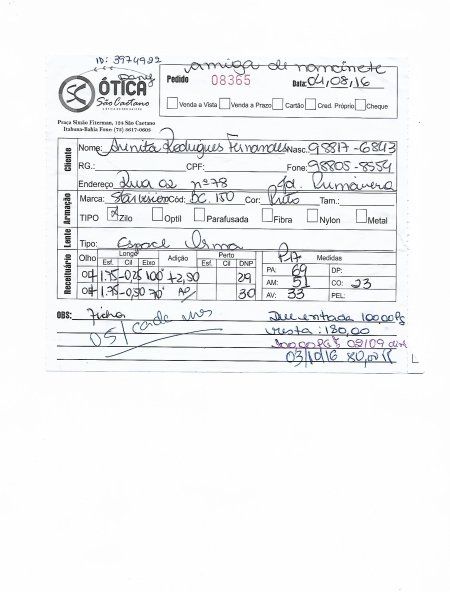 ID: 3974922
amiga de
Dany
ÓTICA
São Caetano
Pedido 08365 Data: 04,08,16
Venda a Vista Venda a Prazo Cartão Cred. Próprio Cheque
Praça Simão Fiterman, 124 São Caetano
Itabuna-Bahia Fone: (73) 3617-0605
Cliente
Nome: Rodrigues Fernandes Nasc. 98817-6843
RG.: CPF: Fone: 98805-8554
Endereço Rua 02 nº 78 Jd. Primavera
Armação
Marca: Cód: BC 150 Cor: Preto Tam.:
TIPO Zilo Optil Parafusada Fibra Nylon Metal
Lente
Tipo: Espace Orma
Receituário
Olho Longe Adição Perto Medidas
Esf. Cil Eixo Esf. Cil DNP
OD +1.75 -0,25 100° +2,50 29
OE +1.75 -0,50 70° AO 30
PA: 69 DP:
AM: 51 CO: 23
AV: 33 PEL:
OBS: Ficha
05/ cada mês
Deu entrada 100,00 Pg
resta: 180,00
100,00 PG 02/09
03/10/16 80,00
L